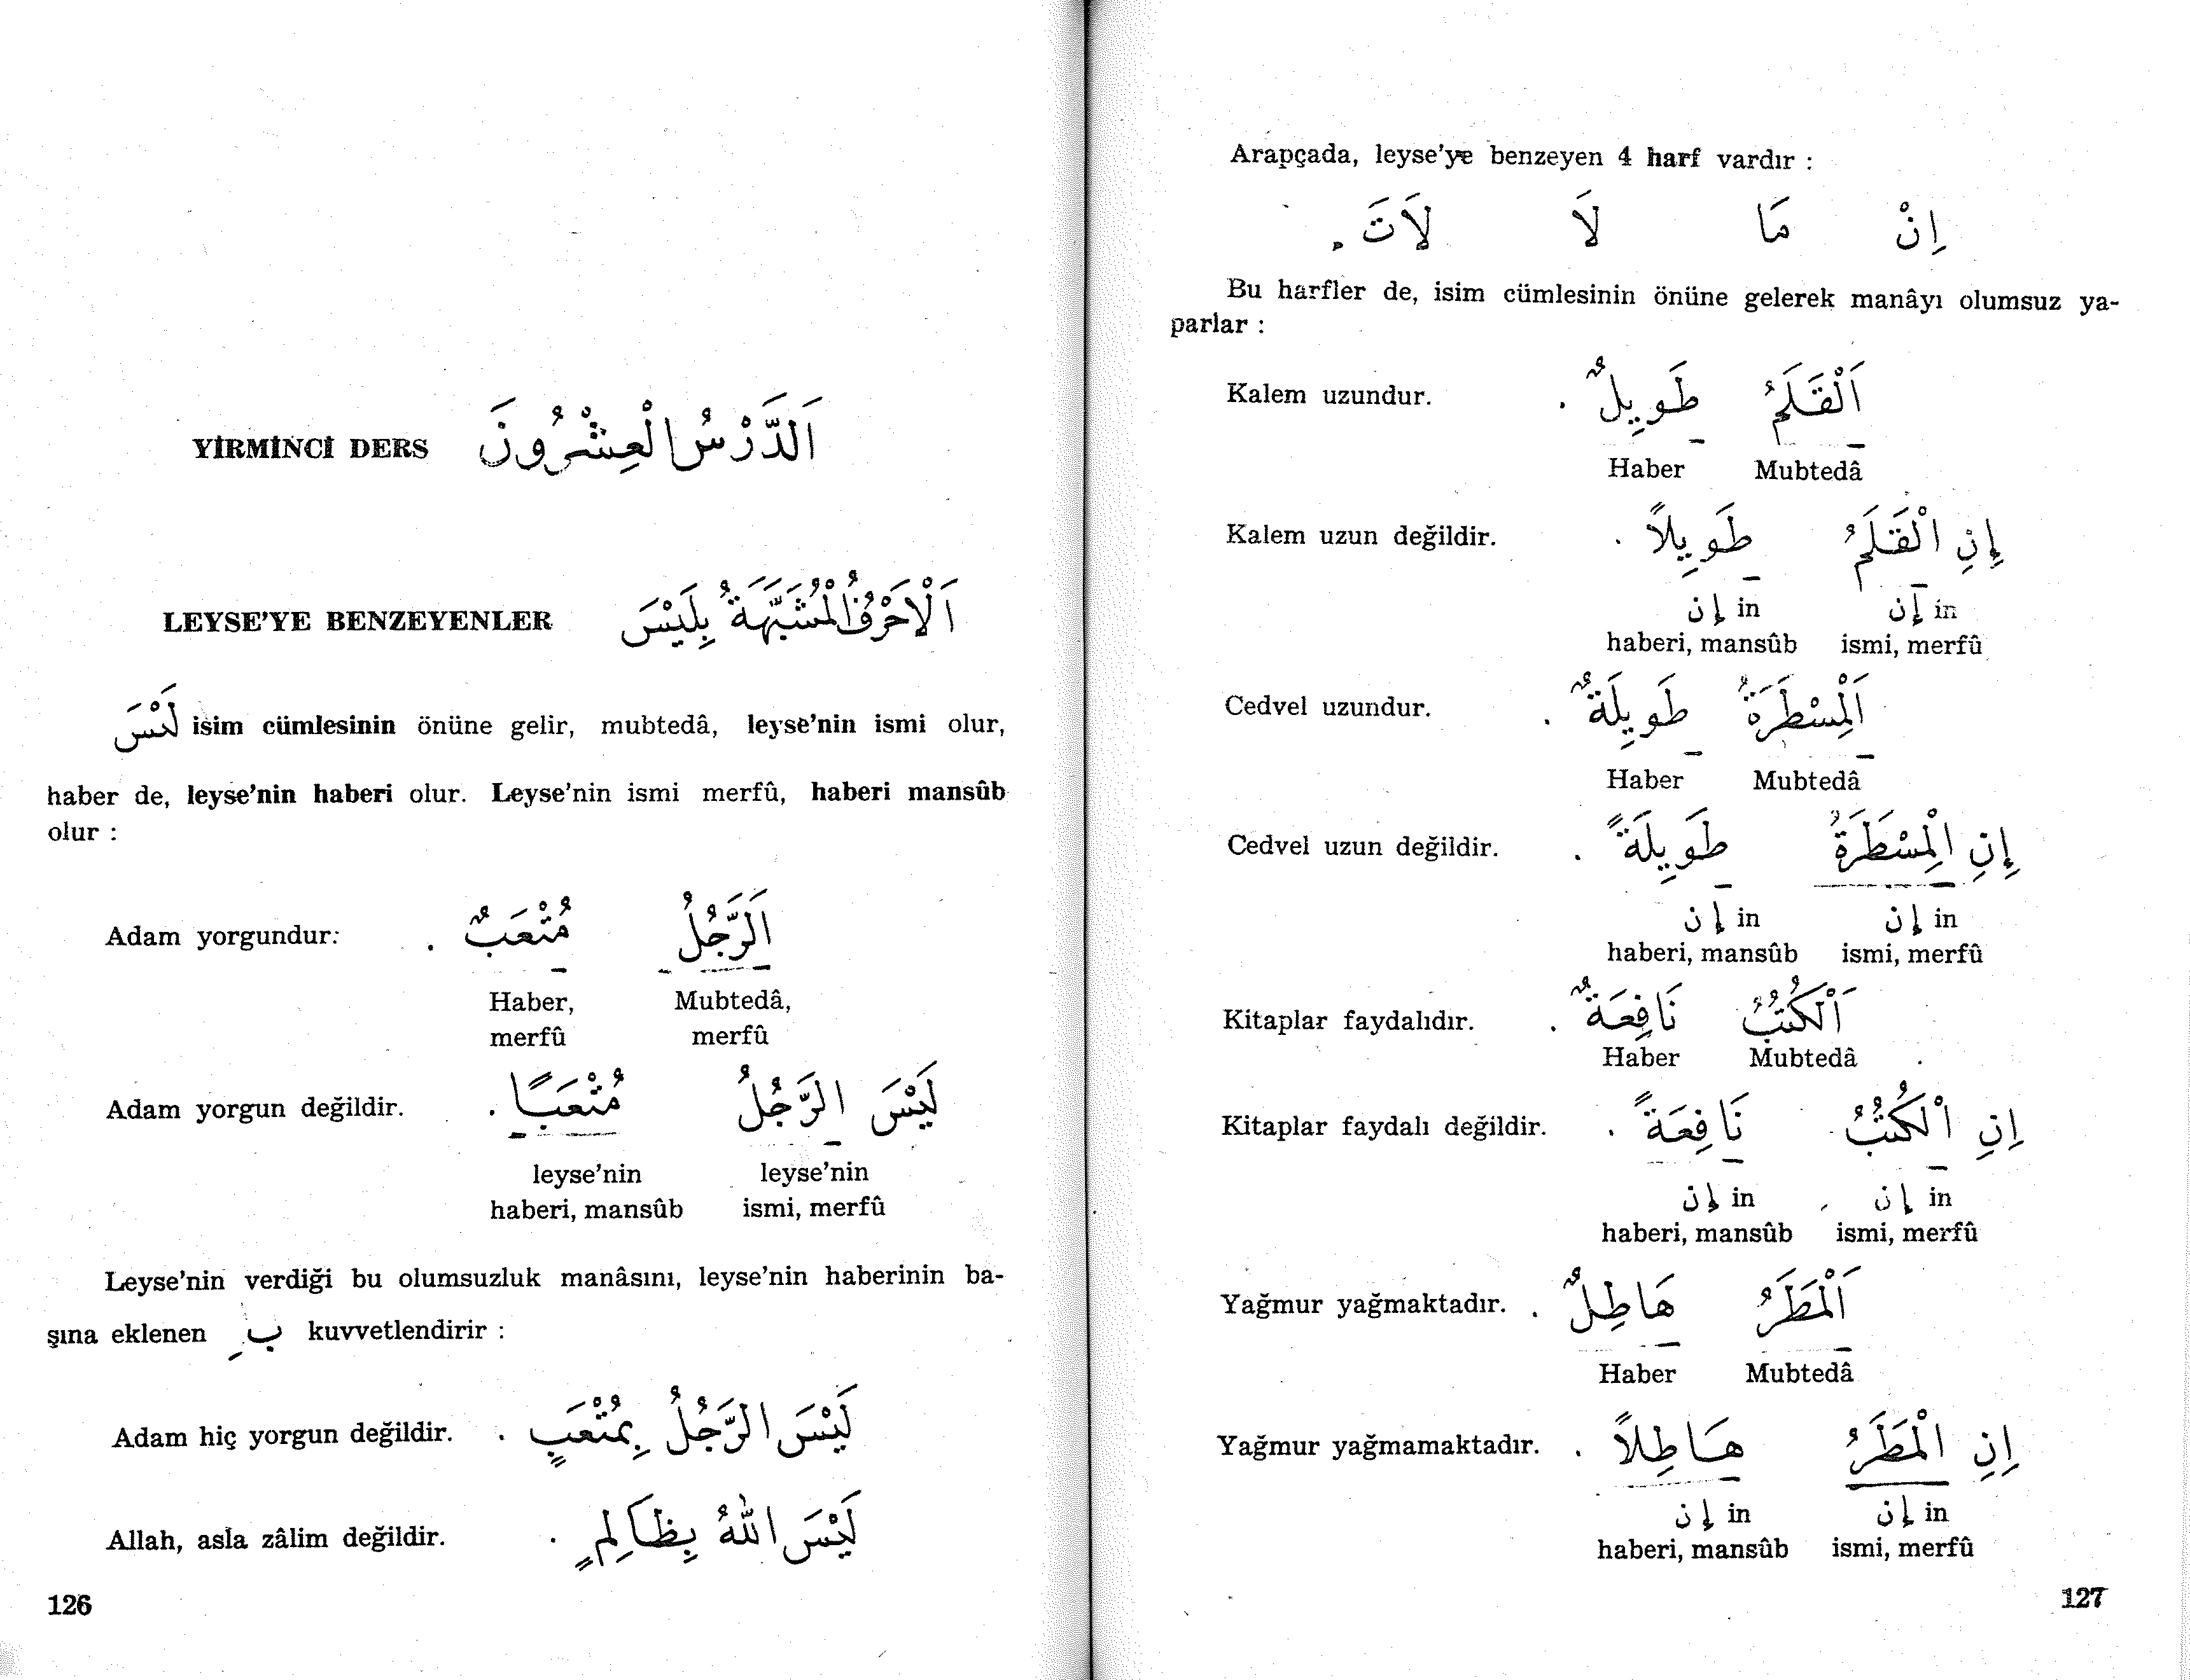 YİRMİNCİ DERS اَلدَّرْسُ الْعِشْرُونَ
LEYSE'YE BENZEYENLER اَلْاَحْرُفُ الْمُشَبَّهَةُ بِلَيْسَ
لَيْسَ isim cümlesinin önüne gelir, mubtedâ, leyse'nin ismi olur,
haber de, leyse'nin haberi olur. Leyse'nin ismi merfû, haberi mansûb
olur :
Adam yorgundur: اَلرَّجُلُ مُتْعَبٌ .
Haber, Mubtedâ,
merfû merfû
Adam yorgun değildir. لَيْسَ الرَّجُلُ مُتْعَبًا .
leyse'nin leyse'nin
haberi, mansûb ismi, merfû
Leyse'nin verdiği bu olumsuzluk manâsını, leyse'nin haberinin ba-
şına eklenen بِ kuvvetlendirir :
Adam hiç yorgun değildir. لَيْسَ الرَّجُلُ بِمُتْعَبٍ .
Allah, asla zâlim değildir. لَيْسَ اللّٰهُ بِظَالِمٍ .
126
Arapçada, leyse'ye benzeyen 4 harf vardır :
اِنْ مَا لَا لَاتَ .
Bu harfler de, isim cümlesinin önüne gelerek manâyı olumsuz ya-
parlar :
Kalem uzundur. اَلْقَلَمُ طَوِيلٌ .
Haber Mubtedâ
Kalem uzun değildir. إِنِ الْقَلَمُ طَوِيلاً .
إن in إن in
haberi, mansûb ismi, merfû
Cedvel uzundur. اَلْمِسْطَرَةُ طَوِيلَةٌ .
Haber Mubtedâ
Cedvel uzun değildir. إِنِ الْمِسْطَرَةُ طَوِيلَةً .
إن in إن in
haberi, mansûb ismi, merfû
Kitaplar faydalıdır. اَلْكُتُبُ نَافِعَةٌ .
Haber Mubtedâ
Kitaplar faydalı değildir. اِنِ الْكُتُبُ نَافِعَةً .
إن in إن in
haberi, mansûb ismi, merfû
Yağmur yağmaktadır. اَلْمَطَرُ هَاطِلٌ .
Haber Mubtedâ
Yağmur yağmamaktadır. اِنِ الْمَطَرُ هَاطِلاً .
إن in إن in
haberi, mansûb ismi, merfû
127